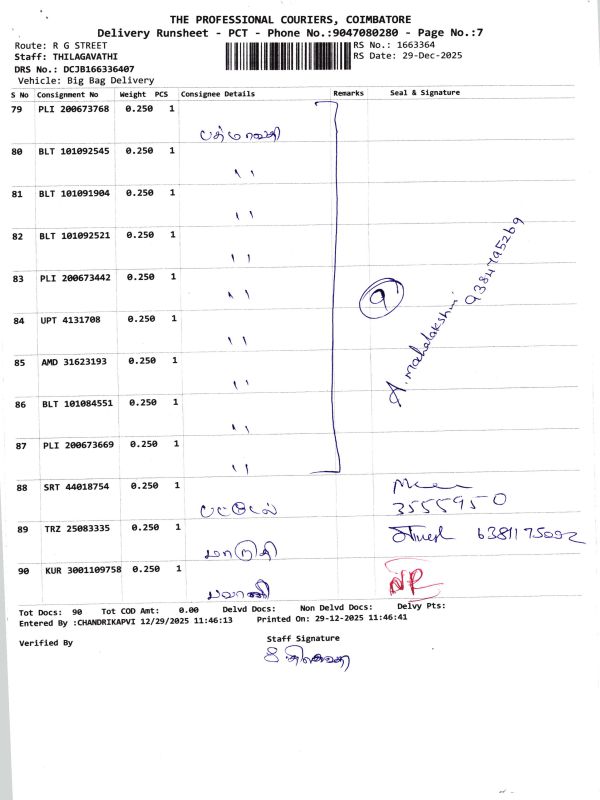 THE PROFESSIONAL COURIERS, COIMBATORE
Delivery Runsheet - PCT - Phone No.:9047080280 - Page No.:7
Route: R G STREET
RS No.: 1663364
Staff: THILAGAVATHI
RS Date: 29-Dec-2025
DRS No.: DCJB166336407
Vehicle: Big Bag Delivery
S No Consignment No Weight PCS Consignee Details Remarks Seal & Signature
79 PLI 200673768 0.250 1
பத்மாவதி
80 BLT 101092545 0.250 1
''
81 BLT 101091904 0.250 1
''
82 BLT 101092521 0.250 1
''
83 PLI 200673442 0.250 1
''
9
A. Mahalakshmi
9384795269
84 UPT 4131708 0.250 1
''
85 AMD 31623193 0.250 1
''
86 BLT 101084551 0.250 1
''
87 PLI 200673669 0.250 1
''
88 SRT 44018754 0.250 1
பட்டேல்
3555950
89 TRZ 25083335 0.250 1
மாருதி
6381175092
90 KUR 3001109758 0.250 1
பவானி
NR
Tot Docs: 90 Tot COD Amt: 0.00 Delvd Docs: Non Delvd Docs: Delvy Pts:
Entered By :CHANDRIKAPVI 12/29/2025 11:46:13 Printed On: 29-12-2025 11:46:41
Verified By
Staff Signature